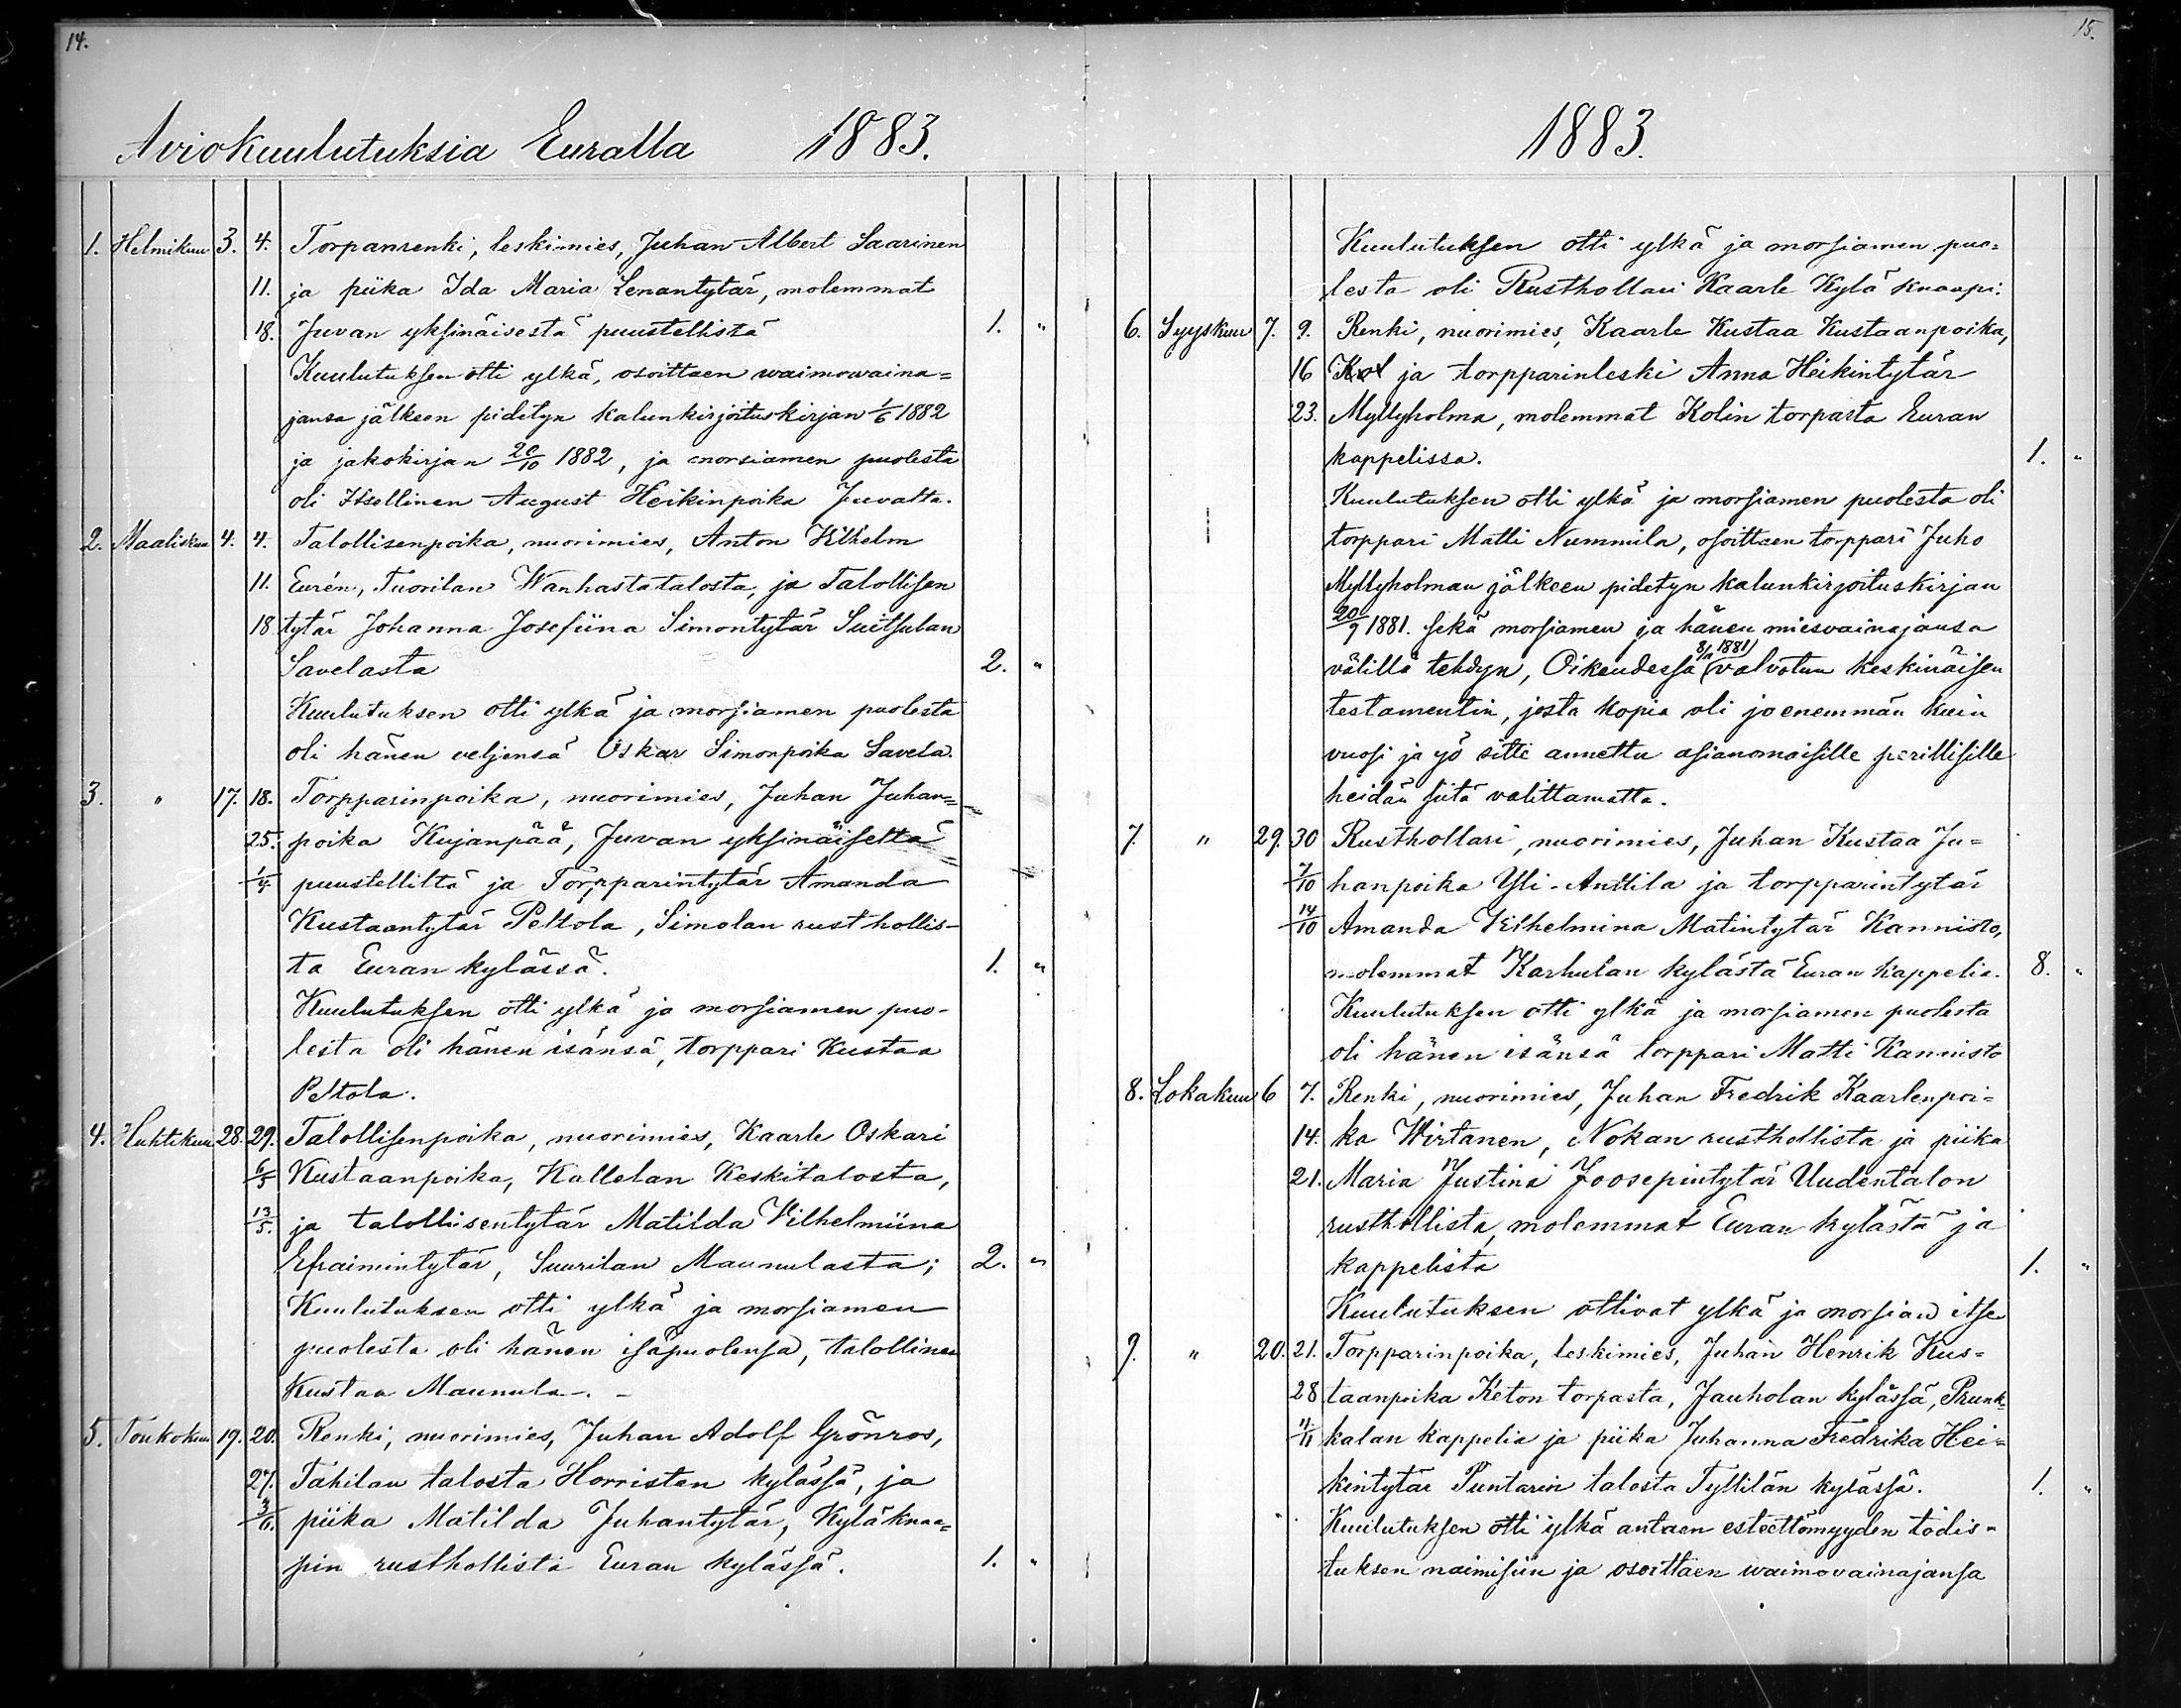 14.
Aviokuulutuksia Euralla 1883.
1. Helmikuu 3. 4. Torpanrenki, leskimies, Juhan Albert Saarinen
11. ja piika Ida Maria Lenantytär, molemmat
18. Juvan yksinäisestä puustellista 1. "
Kuulutuksen otti ylkä, osoittaen waimowaina=
jansa jälkeen pidetyn kalunkirjoituskirjan 1/6 1882
ja jakokirjan 20/10 1882, ja morsiamen puolesta
oli Itsellinen August Heikinpoika Juvalta.
2. Maaliskuu 4. 4. Talollisenpoika, nuorimies, Anton Vilhelm
11. Eurén, Tuorilan Wanhastatalosta, ja Talollisen
18 tytär Johanna Josefiina Simontytär Suitsulan
Savelasta 2. "
Kuulutuksen otti ylkä ja morsiamen puolesta
oli hänen veljensä Oskar Simonpoika Savela.
3. " 17. 18. Torpparinpoika, nuorimies, Juhan Juhan=
25. poika Kujanpää, Juvan yksinäiseltä
1/4 puustellilta ja Torpparintytär Amanda
Kustaantytär Peltola, Simolan rusthollis-
ta Euran kylässä. 1. "
Kuulutuksen otti ylkä ja morsiamen puo-
lesta oli hänen isänsä, torppari Kustaa
Peltola.
4. Huhtikuu 28. 29. Talollisenpoika, nuorimies, Kaarle Oskari
6/5 Kustaanpoika, Kallelan Keskitalosta,
13/5. ja talollisentytär Matilda Vilhelmiina
Efraimintytär, Suurilan Maunulasta; 2. "
Kuulutuksen otti ylkä ja morsiamen
puolesta oli hänen isäpuolensa, talollinen
Kustaa Maunula. -
5. Toukokuu 19. 20. Renki, nuorimies, Juhan Adolf Grönros,
27. Tahilan talosta Horristen kylässä, ja
3/6. piika Matilda Juhantytär, Kyläknaa=
pin rusthollista Euran kylässä. 1. "
15.
1883.
Kuulutuksen otti ylkä ja morsiamen puo=
lesta oli Rusthollari Kaarle Kylä Knaapi.
6. Syyskuu 7. 9. Renki, nuorimies, Kaarle Kustaa Kustaanpoika,
16 Kol ja torpparinleski Anna Heikintytär
23. Myllyholma, molemmat Kolin torpasta Euran
kappelissa. 1. "
Kuulutuksen otti ylkä ja morsiamen puolesta oli
torppari Matti Nummila, osoittaen torppari Juho
Myllyholman jälkeen pidetyn kalunkirjoituskirjan
20/9 1881. sekä morsiamen ja hänen miesvainajansa
välillä tehdyn, Oikeudessa (8/11 1881) valvotun keskinäisen
testamentin, josta kopia oli jo enemmän kuin
vuosi ja yö sitte annettu asianomaisille perillisille
heidän siitä valittamatta.
7. " 29. 30 Rusthollari, nuorimies, Juhan Kustaa Ju=
7/10 hanpoika Yli-Anttila ja torpparintytär
14/10 Amanda Vilhelmina Matintytär Kannisto,
molemmat Karhulan kylästä Euran kappelia. 8. "
Kuulutuksen otti ylkä ja morsiamen puolesta
oli hänen isänsä torppari Matti Kannisto
8. Lokakuu 6 7. Renki, nuorimies, Juhan Fredrik Kaarlenpoi=
14. ka Wirtanen, Nokan rusthollista ja piika
21. Maria Justina Joosepintytär Uudentalon
rusthollista, molemmat Euran kylästä ja
kappelista 1. "
Kuulutuksen ottivat ylkä ja morsian itse
9. " 20. 21. Torpparinpoika, leskimies, Juhan Henrik Kus=
28 taanpoika Keton torpasta, Jauholan kylässä, Prunk=
4/11 kalan kappelia ja piika Juhanna Fredrika Hei=
kintytär Puntarin talosta Tyllilän kylässä. 1. "
Kuulutuksen otti ylkä antaen esteettömyyden todis=
tuksen naimisiin ja osoittaen waimovainajansa